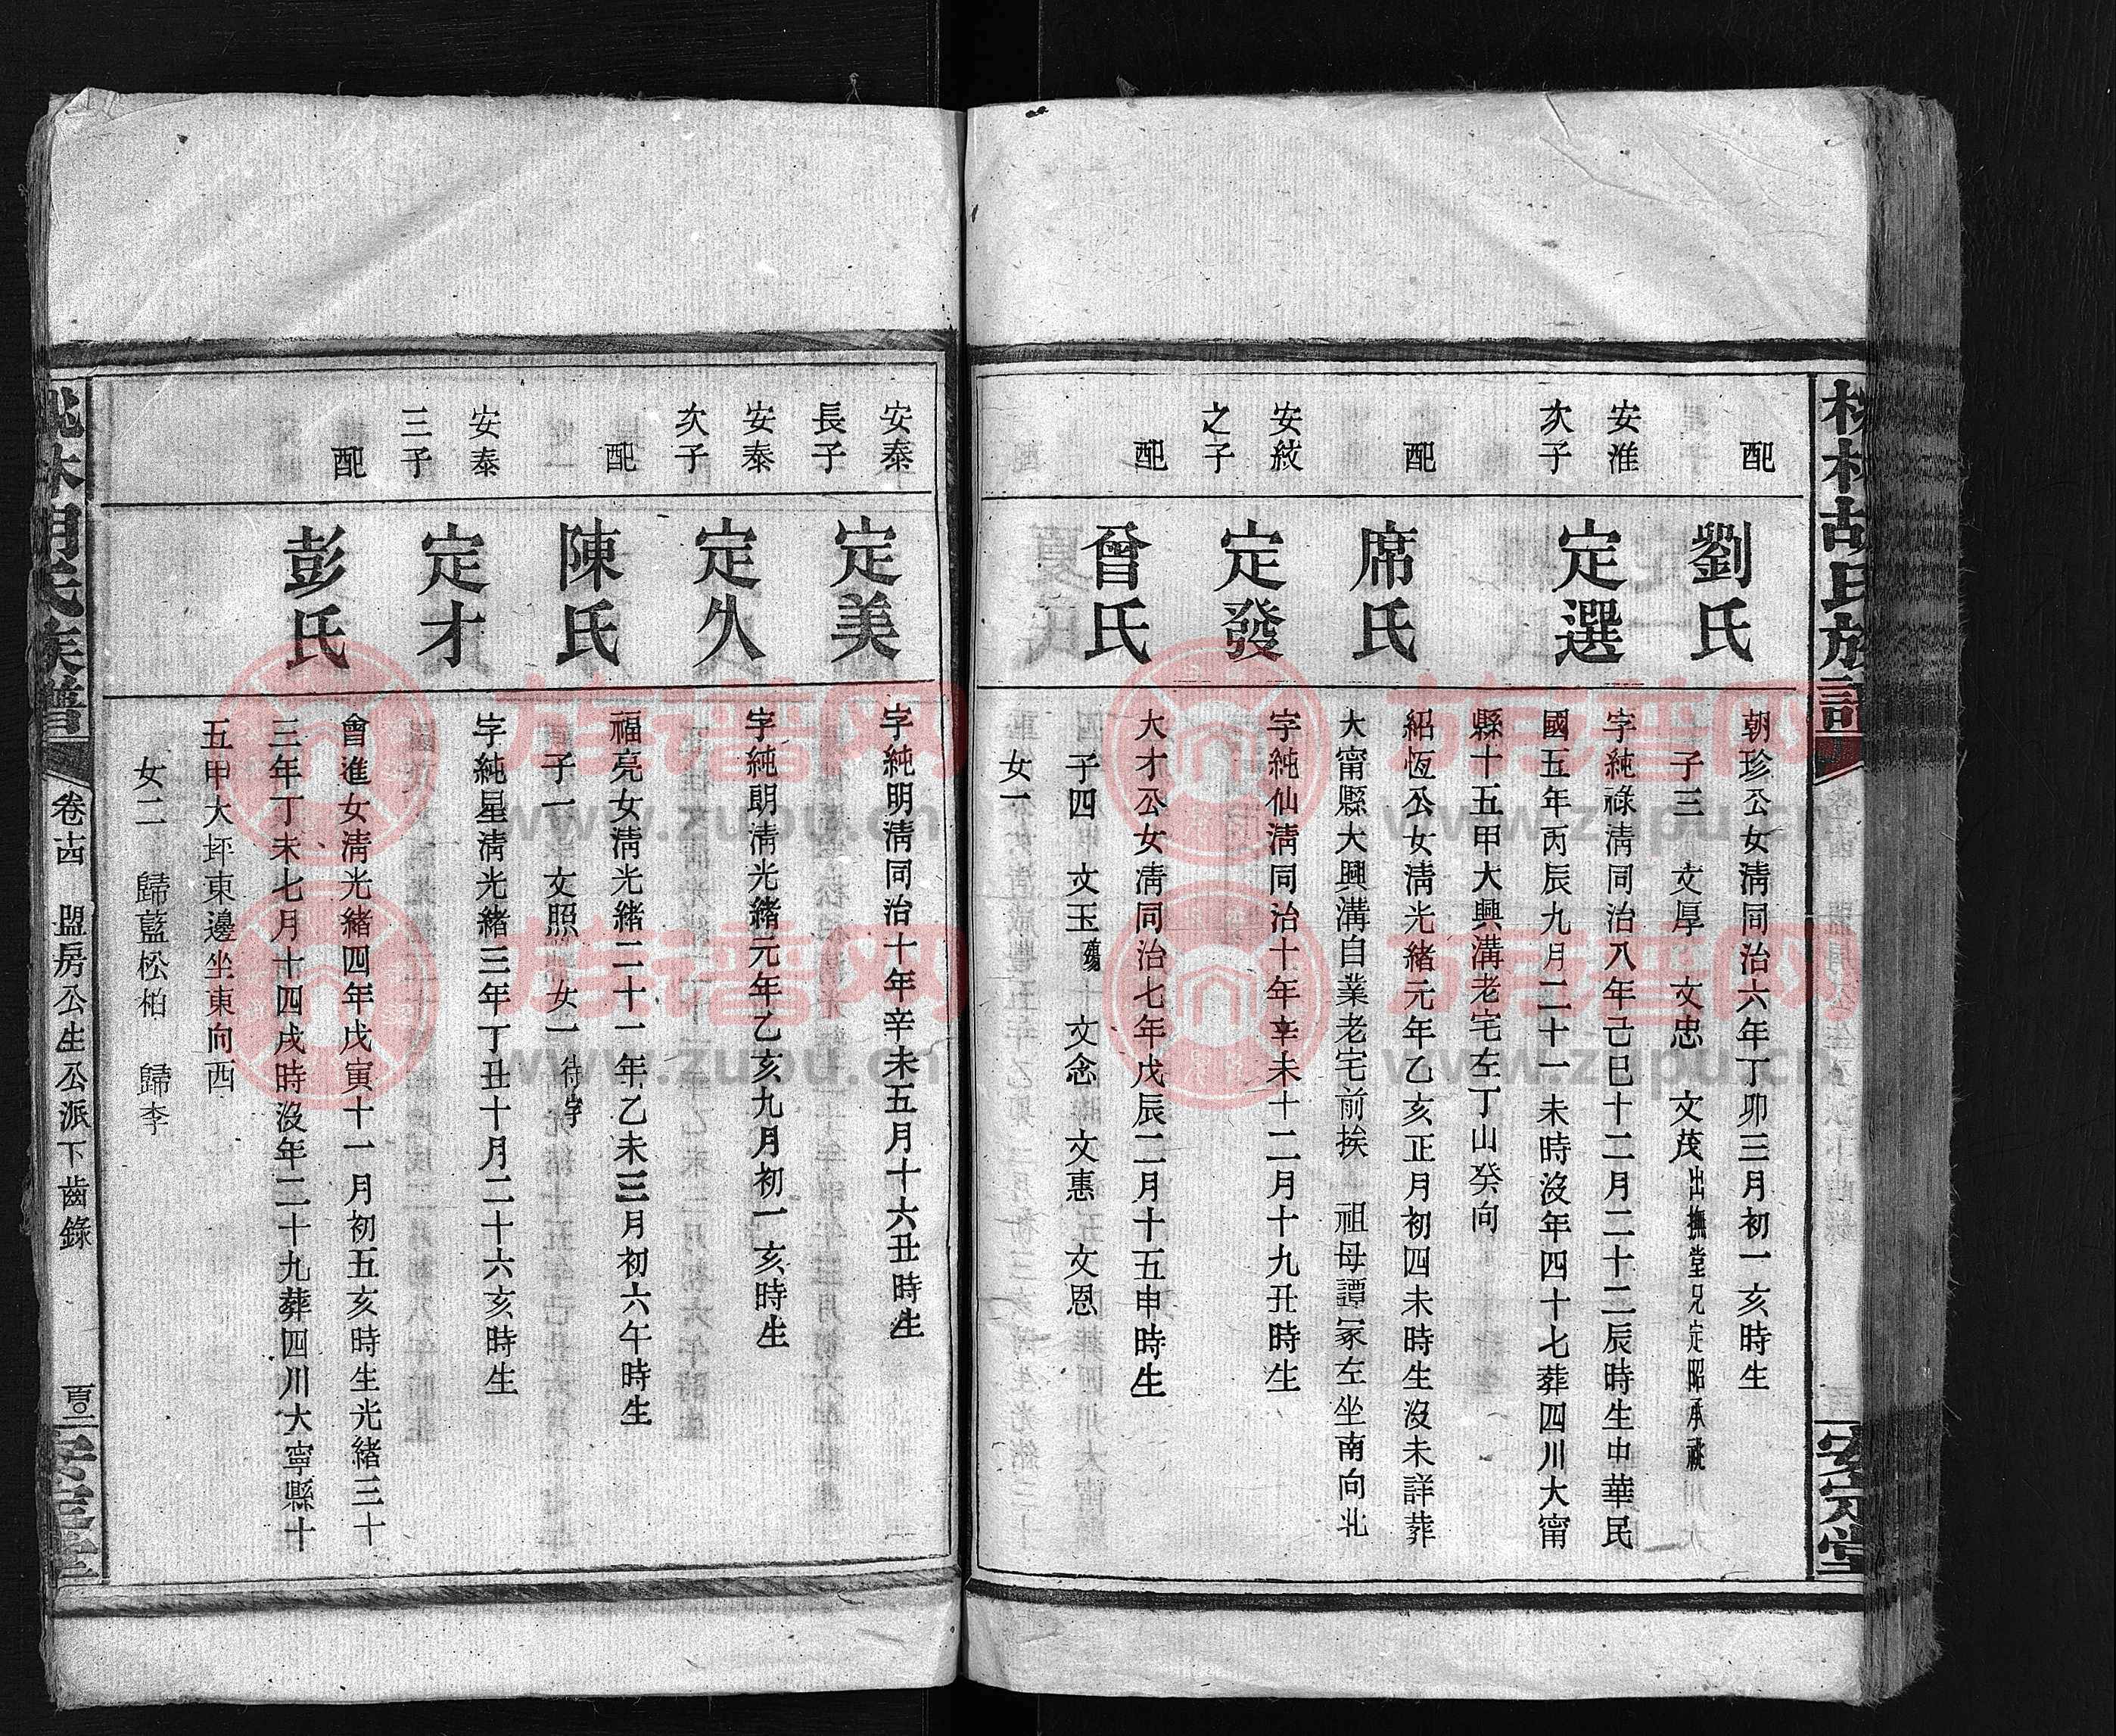 胡氏族譜
安定堂
配
劉氏
朝珍公女淸同治六年丁卯三月初一亥時生
子三 文厚 文忠 文茂出撫堂兄定昭承祧
安淮
次子
定選
字純祿淸同治八年己巳十二月二十二辰時生中華民
國五年丙辰九月二十一未時沒年四十七葬四川大甯
縣十五甲大興溝老宅左丁山癸向
配
席氏
紹恆公女淸光緒元年乙亥正月初四未時生沒未詳葬
大甯縣大興溝自業老宅前挨 祖母譚冢左坐南向北
安紋
之子
定發
字純仙淸同治十年辛未十二月十九丑時生
配
曾氏
大才公女淸同治七年戊辰二月十五申時生
子四 文玉殤 文念 文惠 文恩
女一
安泰
長子
定美
字純明淸同治十年辛未五月十六丑時生
安泰
次子
定久
字純朗淸光緒元年乙亥九月初一亥時生
配
陳氏
福亮女淸光緒二十一年乙未三月初六午時生
子一 文照 女一待字
安泰
三子
定才
字純星淸光緒三年丁丑十月二十六亥時生
配
彭氏
會進女淸光緒四年戊寅十一月初五亥時生光緒三十
三年丁未七月十四戌時沒年二十九葬四川大寧縣十
五甲大坪東邊坐東向西
女二 歸藍松柏 歸李
林胡氏族譜
卷十四 盟房公生公派下齒錄
百〇二
安定堂
族譜网
www.zupu.cn
族譜网
www.zupu.cn
族譜网
www.zupu.cn
族譜网
www.zupu.cn